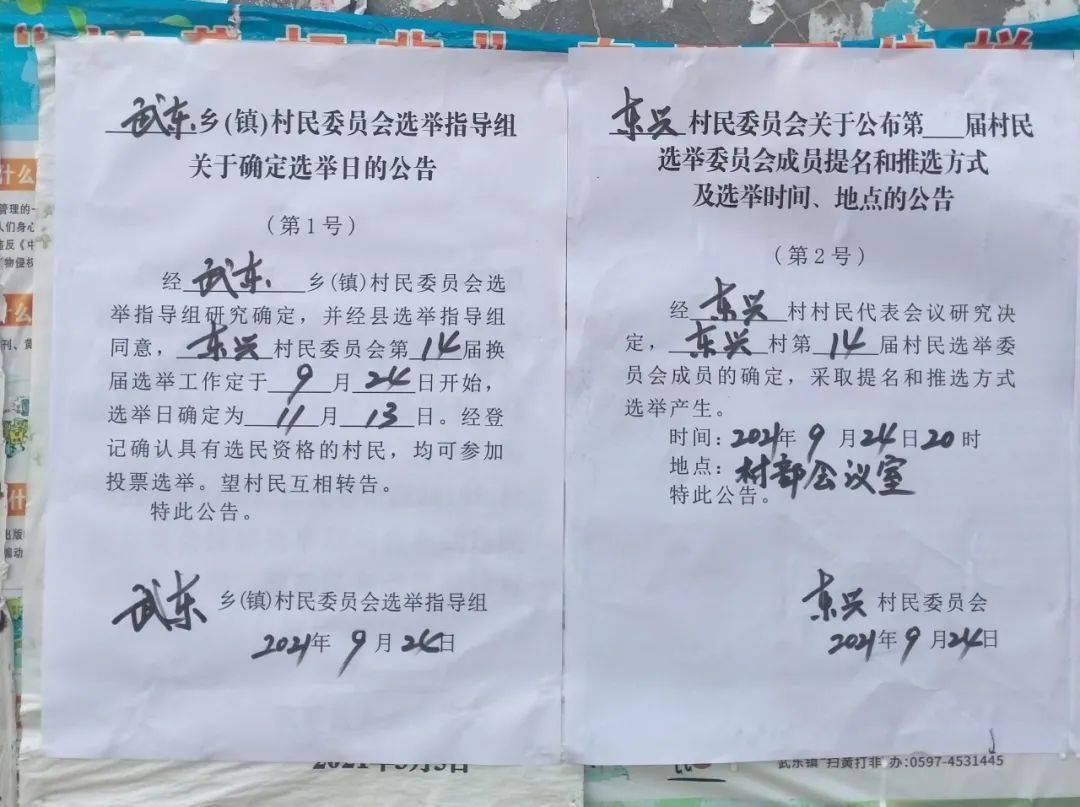 武东乡(镇)村民委员会选举指导组
关于确定选举日的公告
(第1号)
经武东乡(镇)村民委员会选
举指导组研究确定，并经县选举指导组
同意，东兴村民委员会第14届换
届选举工作定于9月24日开始，
选举日确定为11月13日。经登
记确认具有选民资格的村民，均可参加
投票选举。望村民互相转告。
特此公告。
武东乡(镇)村民委员会选举指导组
2021年9月24日
东兴村民委员会关于公布第___届村民
选举委员会成员提名和推选方式
及选举时间、地点的公告
(第2号)
经东兴村村民代表会议研究决
定，东兴村第14届村民选举委
员会成员的确定，采取提名和推选方式
选举产生。
时间：2021年9月24日20时
地点：村部会议室
特此公告。
东兴村民委员会
2021年9月24日
什么
管理的一
人们身心
违反《中
物侵权
什么
出版
编动
武东镇"扫黄打非"办:0597-4531445